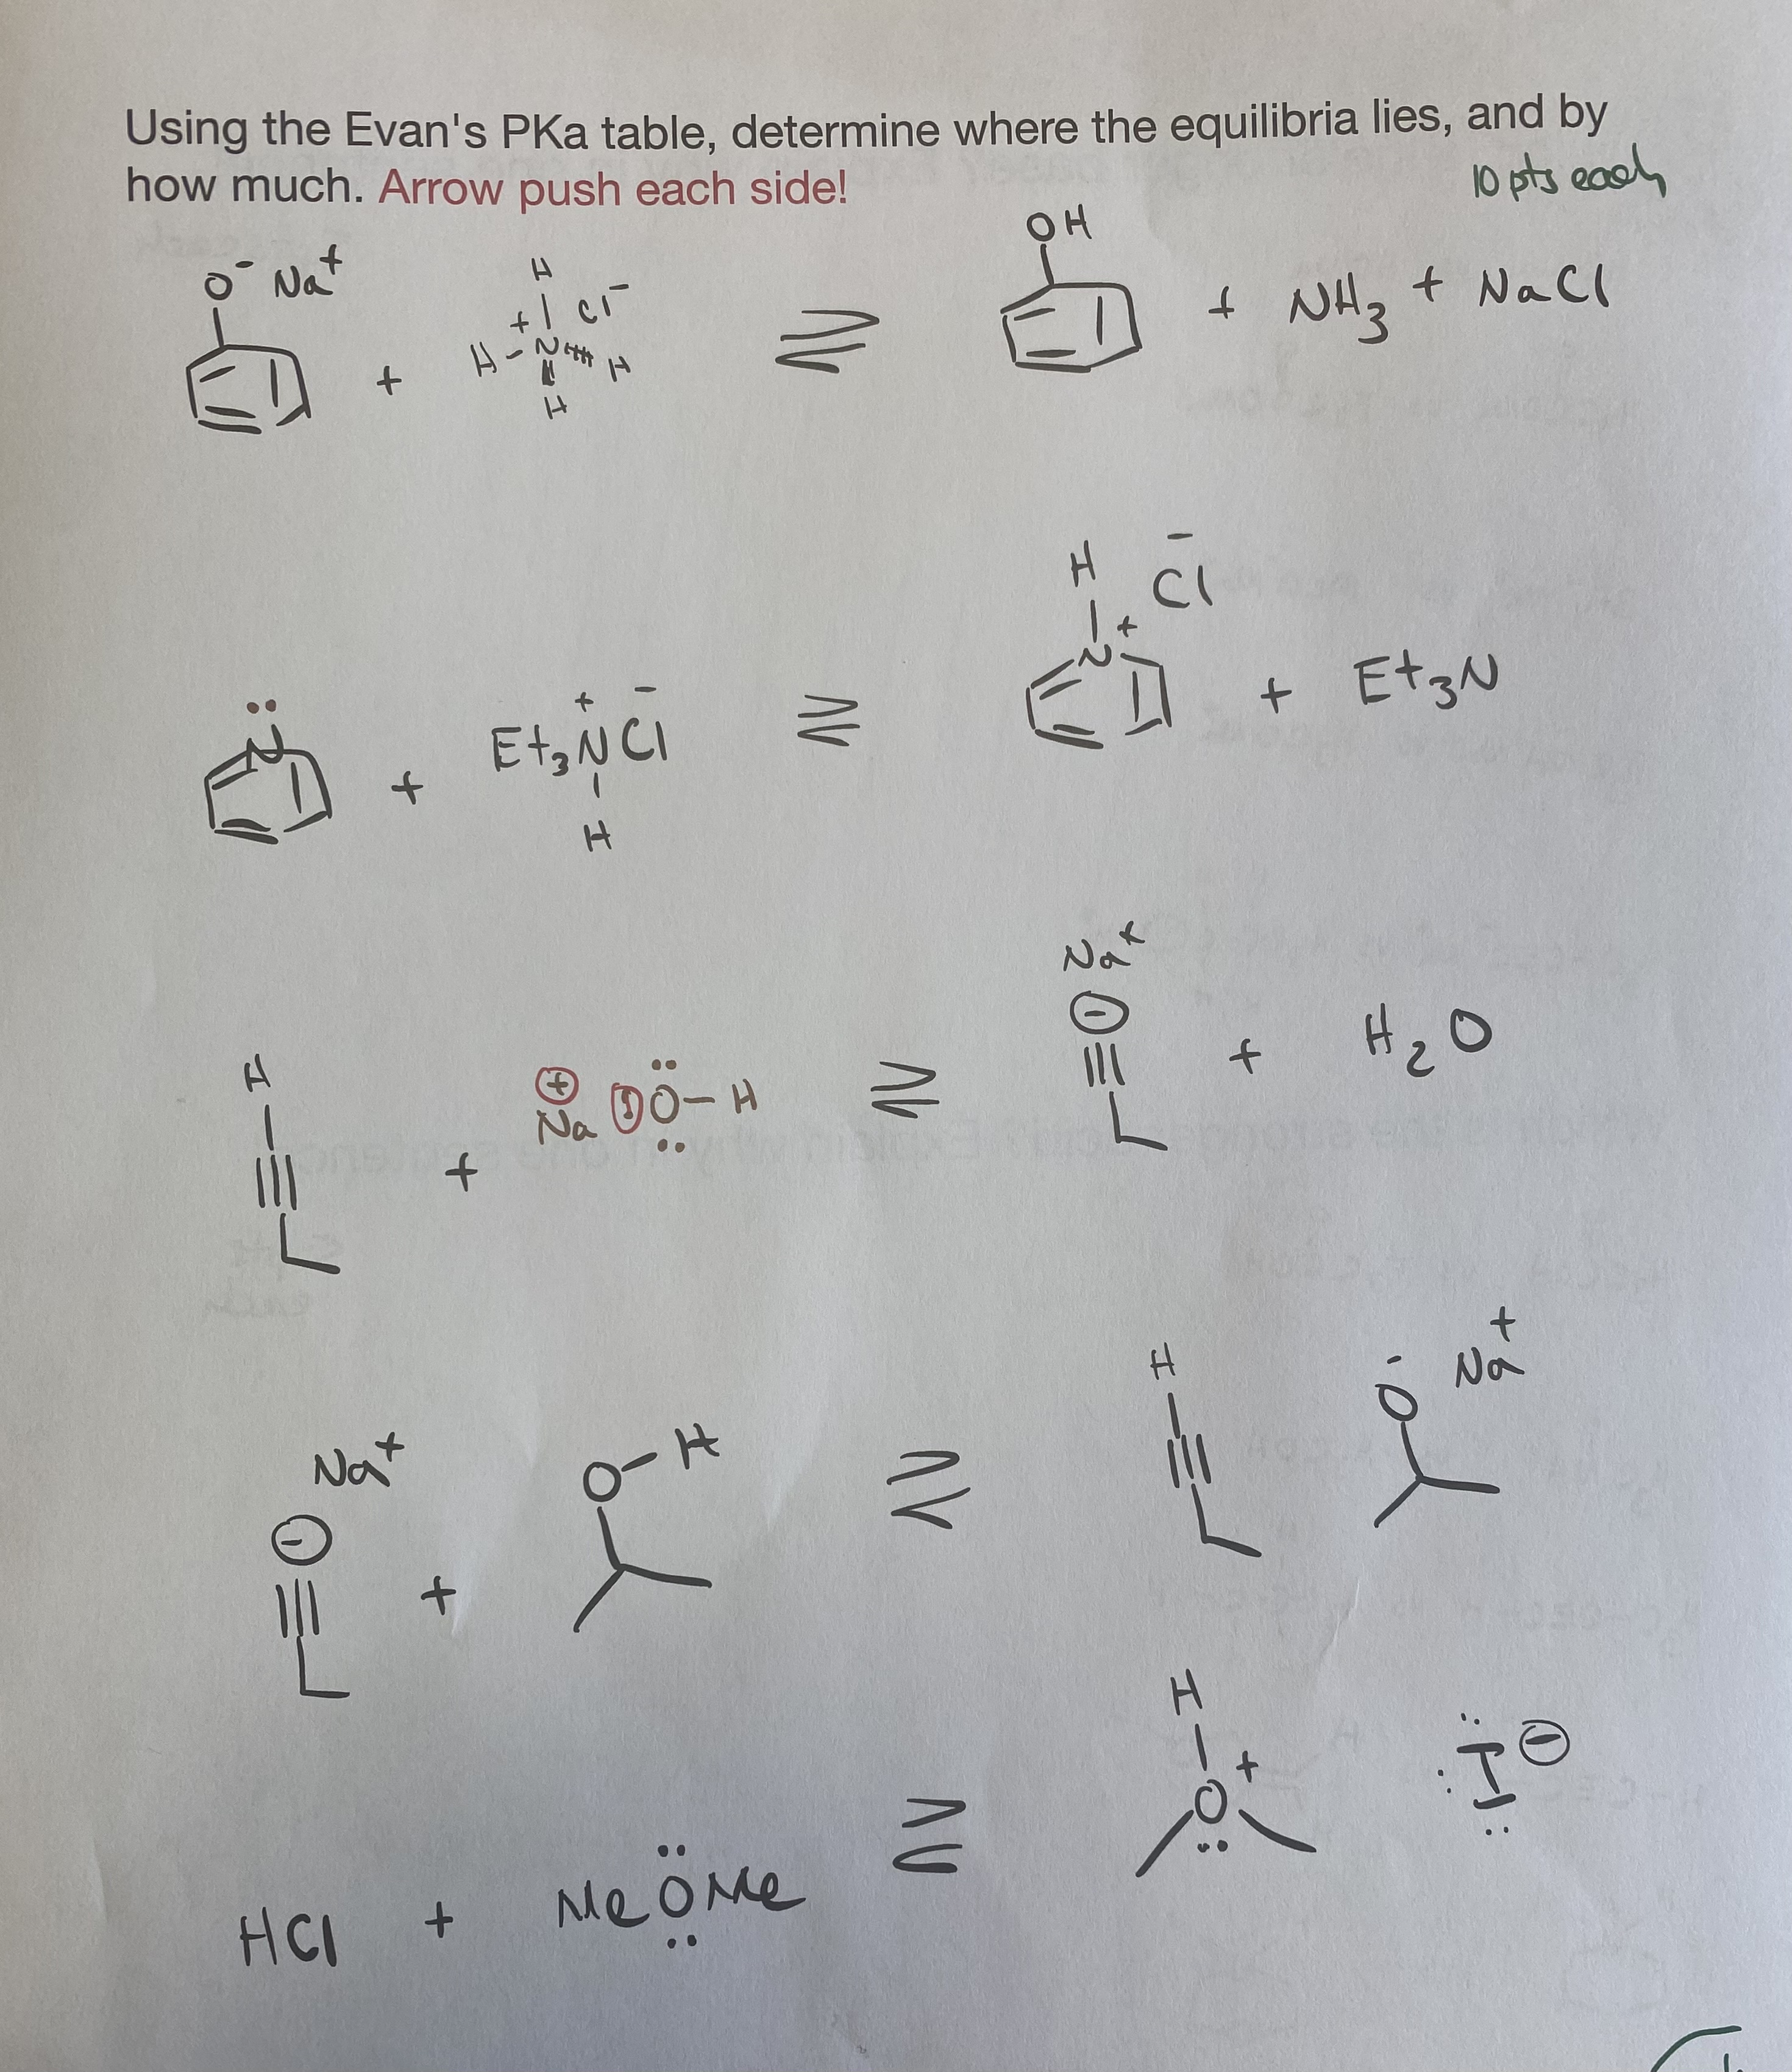 Using the Evan's PKa table, determine where the equilibria lies, and by
how much. Arrow push each side!
10 pts each
O⁻ Na⁺ + H H N⁺ H H Cl⁻ ⇌ OH + NH₃ + NaCl
N̈ + Et₃N⁺ Cl⁻ H ⇌ H N⁺ Cl⁻ + Et₃N
H + Na⊕ ⊖O–H ⇌ Na⁺ ⊖ + H₂O
Na⁺ ⊖ + O–H ⇌ H O⁻ Na⁺
HCl + MeOMe ⇌ H O⁺ I⊖